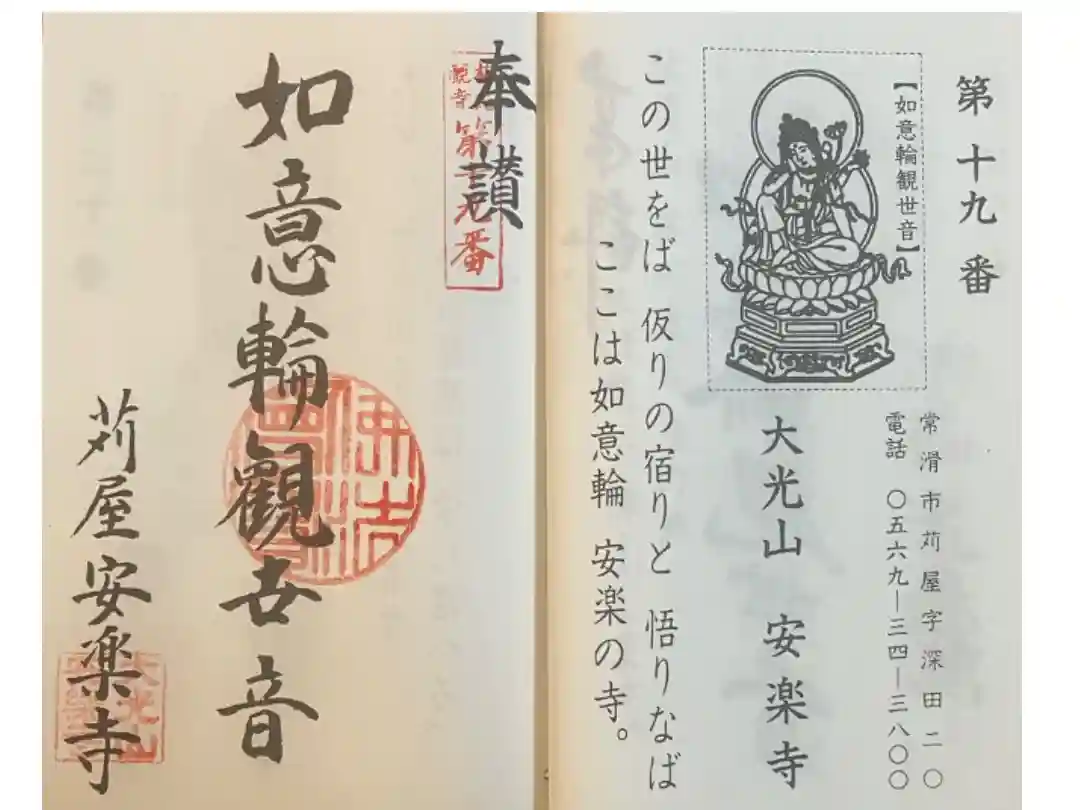 第十九番
【如意輪観世音】
常滑市苅屋字深田二〇
電話 〇五六九―三四―三八〇〇
大光山 安楽寺
この世をば 仮りの宿りと 悟りなば
ここは如意輪 安楽の寺。
奉讃
観音
第十九番
如意輪觀世音
苅屋安楽寺
大光山